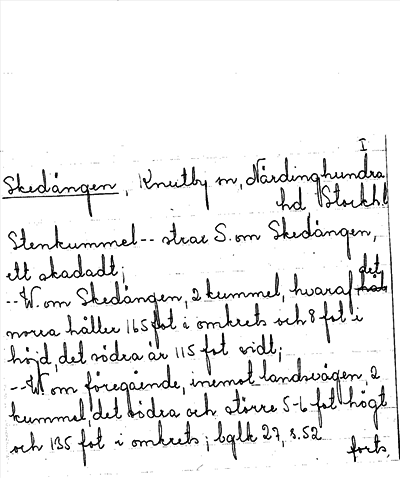 I
Skedången, Knutby sn, Närdinghundra
hd Stockh.l
Stenkummel -- strax S. om Skedången,
ett skadadt;
-- W. om Skedången, 2 kummel, hvaraf det
norra håller 165 fot i omkrets och 8 fot i
höjd, det södra är 115 fot vidt;
-- W om föregående, inemot landsvägen, 2
kummel, det södra och större 5-6 fot högt
och 135 fot i omkrets; bglk 27, s. 52
forts.